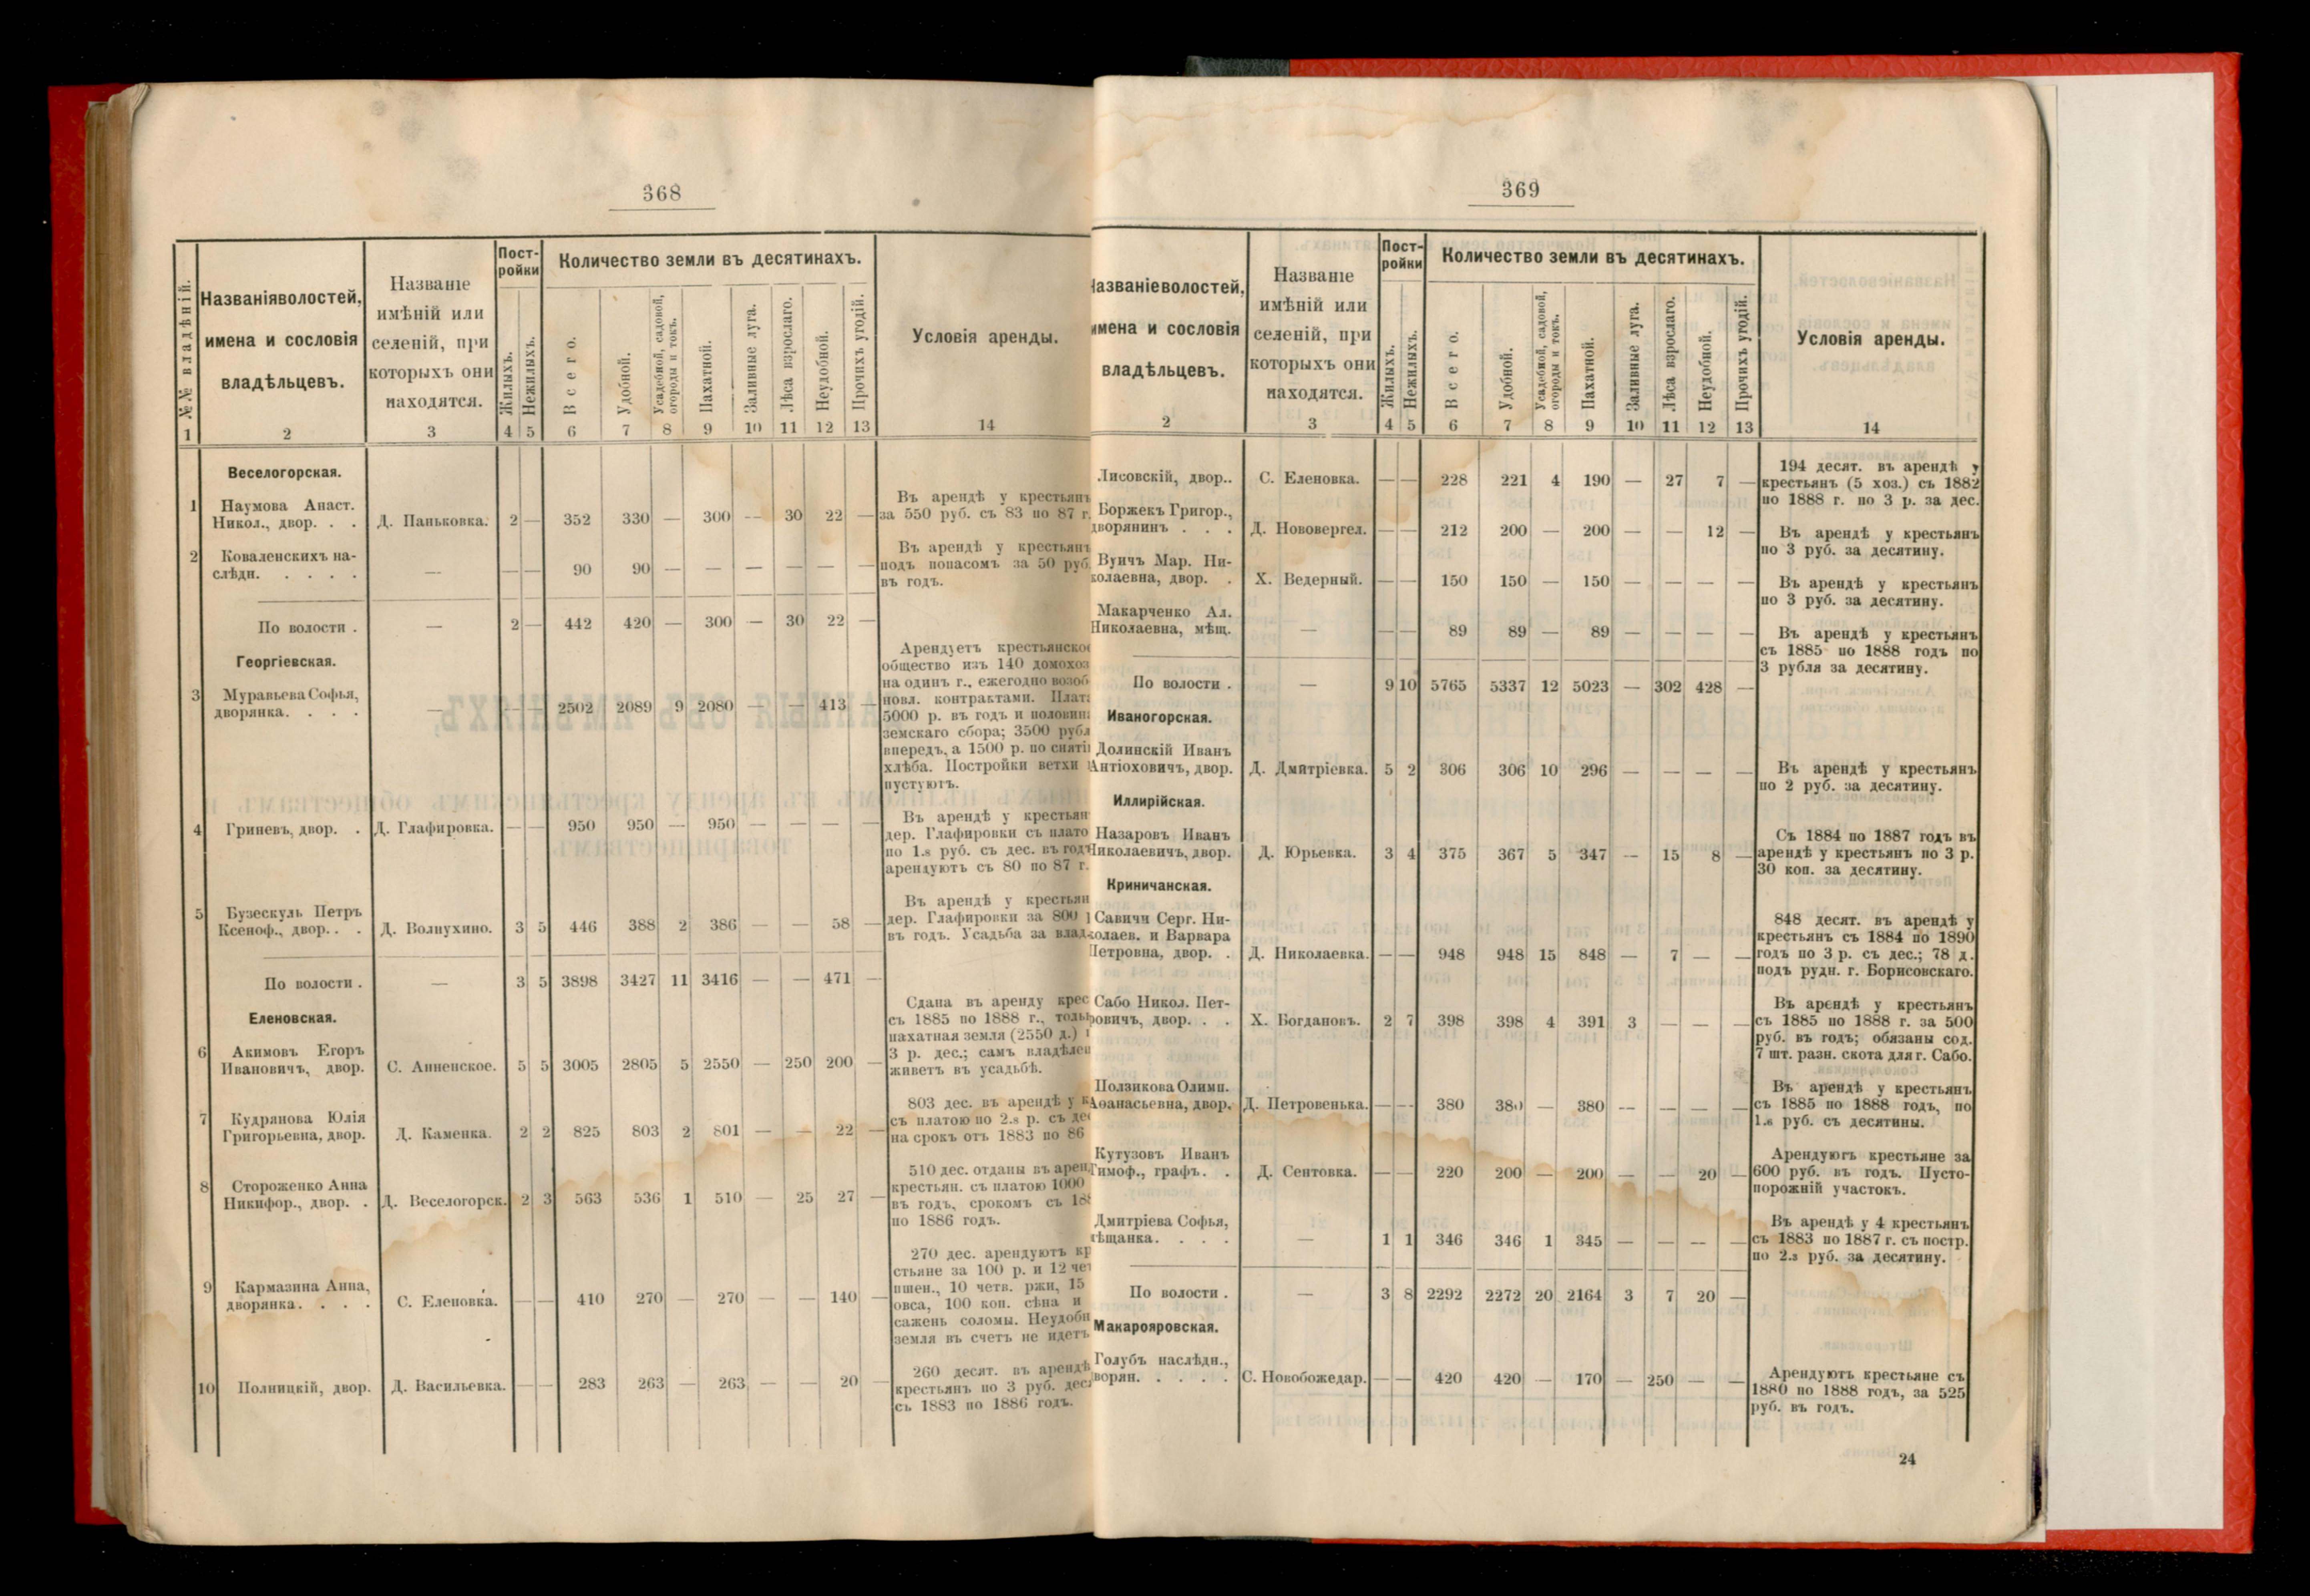 368
№№ владѣній.
Названія волостей,
имена и сословія
владѣльцевъ.
Названіе
имѣній или
селеній, при
которыхъ они
находятся.
Пост-
ройки
Жилыхъ.
Нежилыхъ.
Количество земли въ десятинахъ.
Всего.
Удобной.
Усадебной, садовой,
огороды и токъ.
Пахатной.
Заливные луга.
Лѣса взрослаго.
Неудобной.
Прочихъ угодій.
Условія аренды.
1 2 3 4 5 6 7 8 9 10 11 12 13 14
Веселогорская.
1 Наумова Анаст.
Никол., двор. . . Д. Паньковка. 2 — 352 330 — 300 — 30 22 —
Въ арендѣ у крестьянъ
за 550 руб. съ 83 по 87 г.
2 Коваленскихъ на-
слѣдн. . . . . — — — 90 90 — — — — — —
Въ арендѣ у крестьянъ
подъ попасомъ за 50 руб.
въ годъ.
По волости . — 2 — 442 420 — 300 — 30 22 —
Георгіевская.
3 Муравьева Софья,
дворянка. . . . — — — 2502 2089 9 2080 — — 413 —
Арендуетъ крестьянское
общество изъ 140 домохоз
на одинъ г., ежегодно возоб
новл. контрактами. Плата
5000 р. въ годъ и половина
земскаго сбора; 3500 рубл
впередъ, а 1500 р. по снятіи
хлѣба. Постройки ветхи
пустуютъ.
4 Гриневъ, двор. . Д. Глафировка. — — 950 950 — 950 — — — —
Въ арендѣ у крестьян
дер. Глафировки съ плато
по 1.8 руб. съ дес. въ год
арендуютъ съ 80 по 87 г.
5 Бузескуль Петръ
Ксеноф., двор. . . Д. Волнухино. 3 5 446 388 2 386 — — 58 —
Въ арендѣ у крестьян
дер. Глафировки за 800
въ годъ. Усадьба за влад.
По волости . — 3 5 3898 3427 11 3416 — — 471 —
Еленовская.
6 Акимовъ Егоръ
Ивановичъ, двор. С. Анненское. 5 5 3005 2805 5 2550 — 250 200 —
Сдана въ аренду крес
съ 1885 по 1888 г., тольк
пахатная земля (2550 д.)
3 р. дес.; самъ владѣлец
живетъ въ усадьбѣ.
7 Кудрянова Юлія
Григорьевна, двор. Д. Каменка. 2 2 825 803 2 801 — — 22 —
803 дес. въ арендѣ у к
съ платою по 2.8 р. съ дес
на срокъ отъ 1883 по 86
8 Стороженко Анна
Никифор., двор. . Д. Веселогорск. 2 3 563 536 1 510 — 25 27 —
510 дес. отданы въ арен
крестьян. съ платою 1000
въ годъ, срокомъ съ 188
по 1886 годъ.
9 Кармазина Анна,
дворянка. . . . С. Еленовка. — — 410 270 — 270 — — 140 —
270 дес. арендуютъ кр
стьяне за 100 р. и 12 чет
пшен., 10 четв. ржи, 15
овса, 100 коп. сѣна и
сажень соломы. Неудобн
земля въ счетъ не идетъ
10 Полницкій, двор. Д. Васильевка. — — 283 263 — 263 — — 20 —
260 десят. въ арендѣ
крестьянъ по 3 руб. дес.
съ 1883 по 1886 годъ.
369
Названіе волостей,
имена и сословія
владѣльцевъ.
Названіе
имѣній или
селеній, при
которыхъ они
находятся.
Пост-
ройки
Жилыхъ.
Нежилыхъ.
Количество земли въ десятинахъ.
Всего.
Удобной.
Усадебной, садовой,
огороды и токъ.
Пахатной.
Заливные луга.
Лѣса взрослаго.
Неудобной.
Прочихъ угодій.
Условія аренды.
2 3 4 5 6 7 8 9 10 11 12 13 14
Лисовскій, двор.. С. Еленовка. — — 228 221 4 190 — 27 7 —
194 десят. въ арендѣ у
крестьянъ (5 хоз.) съ 1882
по 1888 г. по 3 р. за дес.
Боржекъ Григор.,
дворянинъ . . . Д. Нововергел. — — 212 200 — 200 — — 12 —
Въ арендѣ у крестьянъ
по 3 руб. за десятину.
Вуичъ Мар. Ни-
колаевна, двор. . Х. Ведерный. — — 150 150 — 150 — — — —
Въ арендѣ у крестьянъ
по 3 руб. за десятину.
Макарченко Ал.
Николаевна, мѣщ. — — — 89 89 — 89 — — — —
Въ арендѣ у крестьянъ
съ 1885 по 1888 годъ по
3 рубля за десятину.
По волости . — 9 10 5765 5337 12 5023 — 302 428 —
Иваногорская.
Долинскій Иванъ
Антіоховичъ, двор. Д. Дмитріевка. 5 2 306 306 10 296 — — — —
Въ арендѣ у крестьянъ
по 2 руб. за десятину.
Иллирійская.
Назаровъ Иванъ
Николаевичъ, двор. Д. Юрьевка. 3 4 375 367 5 347 — 15 8 —
Съ 1884 по 1887 годъ въ
арендѣ у крестьянъ по 3 р.
30 коп. за десятину.
Криничанская.
Савичи Серг. Ни-
колаев. и Варвара
Петровна, двор. . Д. Николаевка. — — 948 948 15 848 — 7 — —
848 десят. въ арендѣ у
крестьянъ съ 1884 по 1890
годъ по 3 р. съ дес.; 78 д.
подъ рудн. г. Борисовскаго.
Сабо Никол. Пет-
ровичъ, двор. . . Х. Богдановъ. 2 7 398 398 4 391 3 — — —
Въ арендѣ у крестьянъ
съ 1885 по 1888 г. за 500
руб. въ годъ; обязаны сод.
7 шт. разн. скота для г. Сабо.
Ползикова Олимп.
Аѳанасьевна, двор. Д. Петровенька. — — 380 380 — 380 — — — —
Въ арендѣ у крестьянъ
съ 1885 по 1888 годъ, по
1.6 руб. съ десятины.
Кутузовъ Иванъ
Тимоф., графъ. . Д. Сентовка. — — 220 200 — 200 — — 20 —
Арендуютъ крестьяне за
600 руб. въ годъ. Пусто-
порожній участокъ.
Дмитріева Софья,
мѣщанка. . . . — 1 1 346 346 1 345 — — — —
Въ арендѣ у 4 крестьянъ
съ 1883 по 1887 г. съ постр.
по 2.3 руб. за десятину.
По волости . — 3 8 2292 2272 20 2164 3 7 20 —
Макарояровская.
Голубъ наслѣдн.,
дворян. . . . . С. Новобожедар. — — 420 420 — 170 — 250 — —
Арендуютъ крестьяне съ
1880 по 1888 годъ, за 525
руб. въ годъ.
24